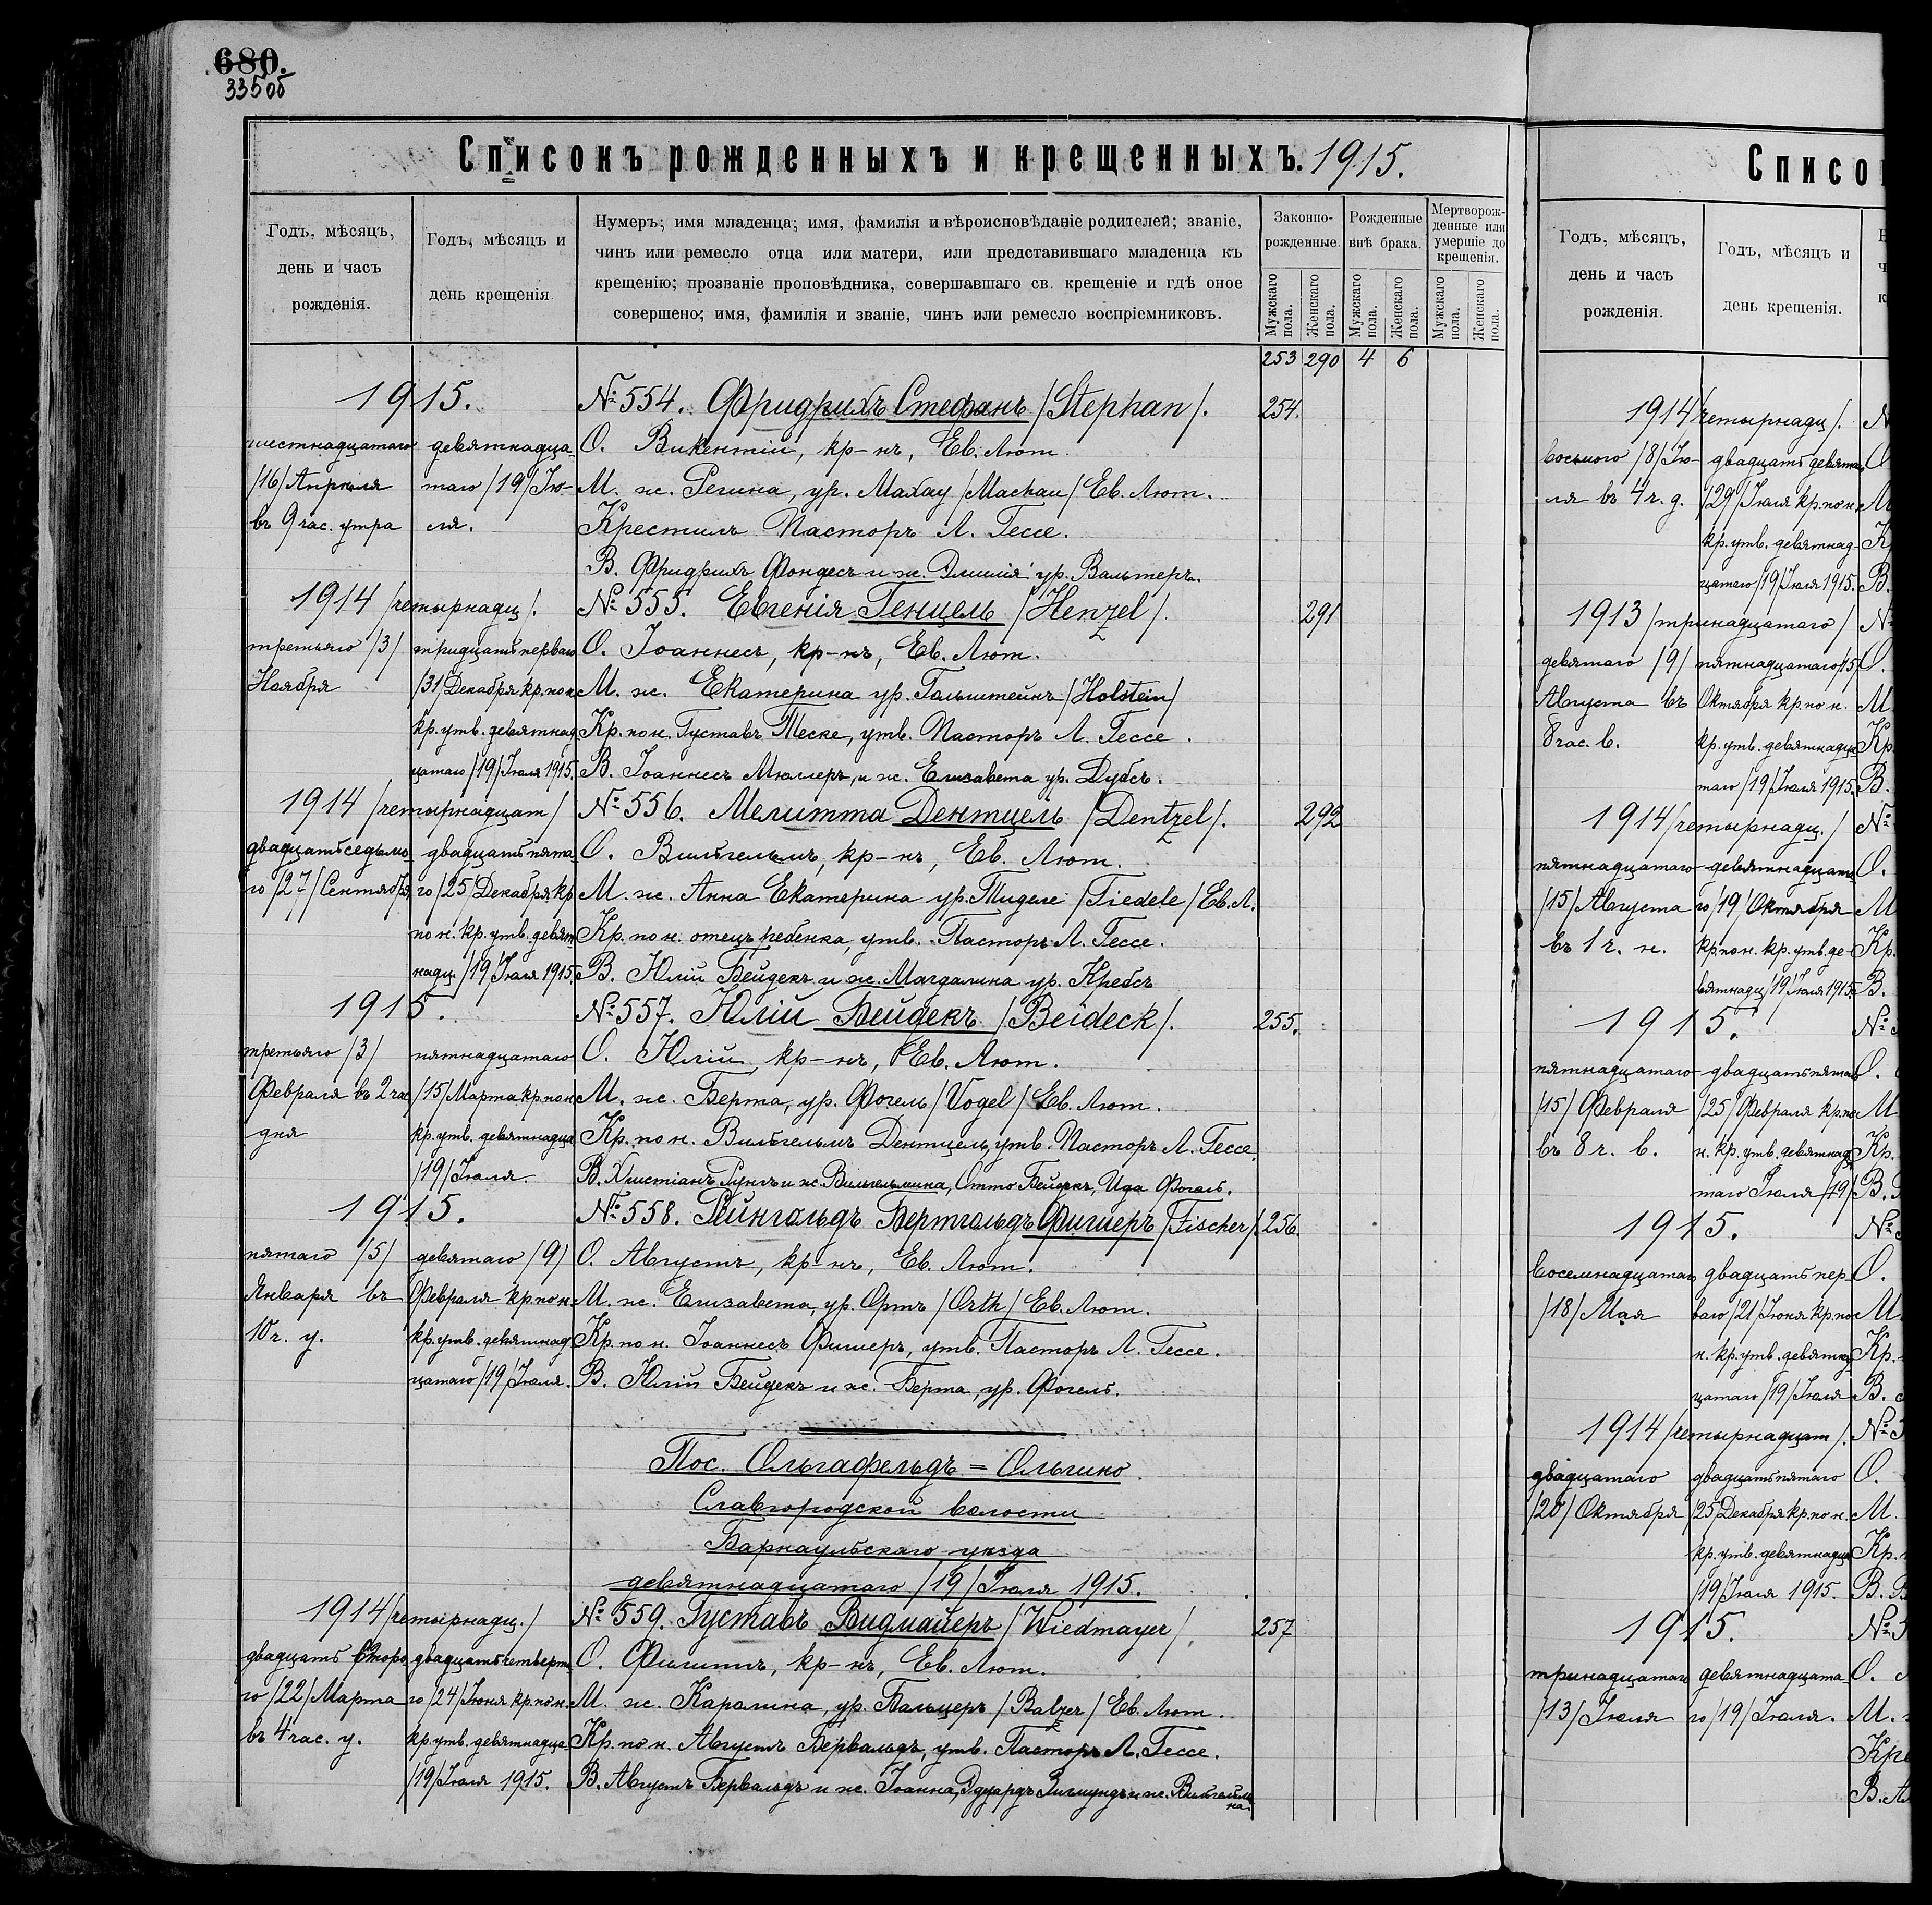 680.
335 об
Списокъ рожденныхъ и крещенныхъ. 1915.
Годъ, мѣсяцъ,
день и часъ
рожденія.
Годъ, мѣсяцъ и
день крещенія
Нумеръ; имя младенца; имя, фамилія и вѣроисповѣданіе родителей; званіе,
чинъ или ремесло отца или матери, или представившаго младенца къ
крещенію; прозваніе проповѣдника, совершавшаго св. крещеніе и гдѣ оное
совершено; имя, фамилія и званіе, чинъ или ремесло воспріемниковъ.
Законно-
рожденные.
Рожденные
внѣ брака.
Мертворож-
денные или
умершіе до
крещенія.
Мужскаго пола.
Женскаго пола.
Мужскаго пола.
Женскаго пола.
Мужскаго пола.
Женскаго пола.
253 290 4 6
1915. № 554. Фридрихъ Стефанъ /Stephan/. 254.
шестнадцатаго девятнадца- О. Викентій, кр-нъ, Ев. Лют.
/16/ Апрѣля таго /19/ Ію- М. ж. Регина, ур. Махау /Machau/ Ев. Лют.
въ 9 час. утра ля. Крестилъ Пасторъ Л. Гессе.
В. Фридрихъ Фондесъ и ж. Эмилія ур. Вальтеръ.
1914 /четырнадц/. № 555. Евгенія Генцель /Henzel/. 291
третьяго /3/ тридцать перваго О. Іоаннесъ, кр-нъ, Ев. Лют.
Ноября /31/ Декабря кр. по н. М. ж. Екатерина ур. Гольштейнъ /Holstein/
кр. утв. девятнад- Кр. по н. Густавъ Теске, утв. Пасторъ Л. Гессе.
цатаго /19/ Іюля 1915. В. Іоаннесъ Мюллеръ, и ж. Елизавета ур. Дубсъ.
1914 /четырнадцат/ № 556. Мелитта Дентцель /Dentzel/. 292
двадцать седьма- двадцать пята- О. Вильгельмъ, кр-нъ, Ев. Лют.
го /27/ Сентября го /25/ Декабря кр. М. ж. Анна Екатерина ур. Тиделе /Tiedele/ Ев. Л.
по н. кр. утв. девят- Кр. по н. отецъ ребенка, утв. Пасторъ Л. Гессе.
надц. /19/ Іюля 1915. В. Юлій Бейдекъ и ж. Магдалина ур. Кребсъ
1915. № 557. Юлій Бейдекъ /Beideck/. 255.
третьяго /3/ пятнадцатаго О. Юлій, кр-нъ, Ев. Лют.
Февраля въ 2 час. /15/ Марта кр. по н. М. ж. Берта, ур. Фогель /Vogel/ Ев. Лют.
дня кр. утв. девятнадца Кр. по н. Вильгельмъ Дентцель, утв. Пасторъ Л. Гессе.
/19/ Іюля. В. Христіанъ и ж. Вильгельмина, Отто Бейдекъ, Ида Фогель.
1915. № 558. Рейнгольдъ Бертгольдъ Фишеръ /Fischer/. 256.
пятаго /5/ девятаго /9/ О. Августъ, кр-нъ, Ев. Лют.
Января въ Февраля кр. по н. М. ж. Елизавета, ур. Ортъ /Orth/ Ев. Лют.
10 ч. у. кр. утв. девятнад- Кр. по н. Іоаннесъ Фишеръ, утв. Пасторъ Л. Гессе.
цатаго /19/ Іюля. В. Юлій Бейдекъ и ж. Берта, ур. Фогель.
Пос. Ольгафельдъ = Ольгино
Славгородской волости
Барнаульскаго уѣзда
девятнадцатаго /19/ Іюля 1915.
1914 /четырнадц./ № 559. Густавъ Видмайеръ /Wiedmayer/. 257
двадцать второ- двадцать четверта- О. Филиппъ, кр-нъ, Ев. Лют.
го /22/ Марта го /24/ Іюня кр. по н. М. ж. Каролина, ур. Бальцеръ /Balzer/ Ев. Лют.
въ 4 час. у. кр. утв. девятнадца- Кр. по н. Августъ Бервальдъ, утв. Пасторъ Л. Гессе.
/19/ Іюля 1915. В. Августъ Бервальдъ и ж. Іоанна, Эдуардъ Зигмундъ и ж. Вильгельми-
на.
Списо
Годъ, мѣсяцъ,
день и часъ
рожденія.
Годъ, мѣсяцъ и
день крещенія.
1914 /четырнадц/. №
восьмого /8/ Ію- двадцать девятаго О.
ля въ 4 ч. д. /29/ Іюля кр. по н. М
кр. утв. девятнад- К
цатаго /19/ Іюля 1915. В.
1913 /тринадцатаго/ №
девятаго /9/ пятнадцатаго /15/ О.
Августа въ Октября кр. по н. М
8 час. в. кр. утв. девятнадца Кр.
таго /19/ Іюля 1915. В.
1914 /четырнадц./ №
пятнадцатаго девятнадцата- О.
/15/ Августа го /19/ Октября М
въ 1 ч. н. кр. по н. кр. утв. де- Кр.
вятнадц /19/ Іюля 1915. В.
1915. №
пятнадцатаго двадцать пятаго О.
/15/ Февраля /25/ Февраля кр. по М
въ 8 ч. в. н. кр. утв. девятнадц Кр.
таго Іюля /19/ В.
1915. №
восемнадцатаго двадцать пер- О.
/18/ Мая ваго /21/ Іюня кр. по М
н. кр. утв. девятнад Кр.
цатаго /19/ Іюля В.
1914 /четырнадцат/. №
двадцатаго двадцать пятаго О.
/20/ Октября /25/ Декабря кр. по н. М.
кр. утв. девятнадца Кр.
/19/ Іюля 1915. В.
1915. №
тринадцатаго девятнадцата- О.
/13/ Іюля го /19/ Іюля. М.
Кре
В. Ав